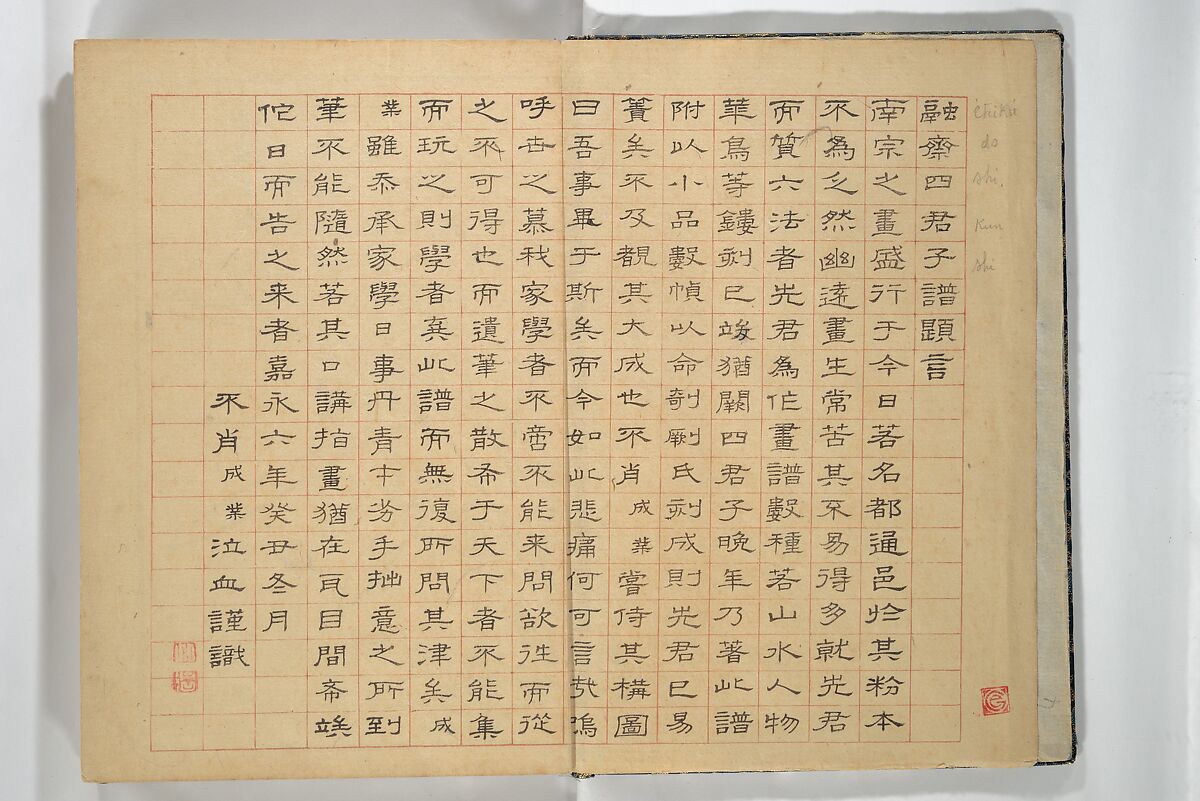 融齋四君子譜題言
南宗之畫盛行于今日若名都通邑於其粉本
不為乏然幽遠畫生常苦其不易得多就先君
而質六法者先君為作畫譜數種若山水人物
華鳥等鏤刻已竣猶闕四君子晚年乃著此譜
附以小品數幀以命剞劂氏刻成則先君已易
簀矣不及覩其大成也不肖成業嘗侍其構圖
曰吾事畢于斯矣而今如此悲痛何可言哉嗚
呼世之慕我家學者不啻不能来問欲往而從
之不可得也而遺筆之散布于天下者不能集
而玩之則學者棄此譜而無復所問其津矣成
業雖忝承家學日事丹青才劣手拙意之所到
筆不能隨然若其口講指畫猶在耳目間布竢
佗日而告之来者嘉永六年癸丑冬月
不肖成業泣血謹識
chiku
do
shi
Kun
shi